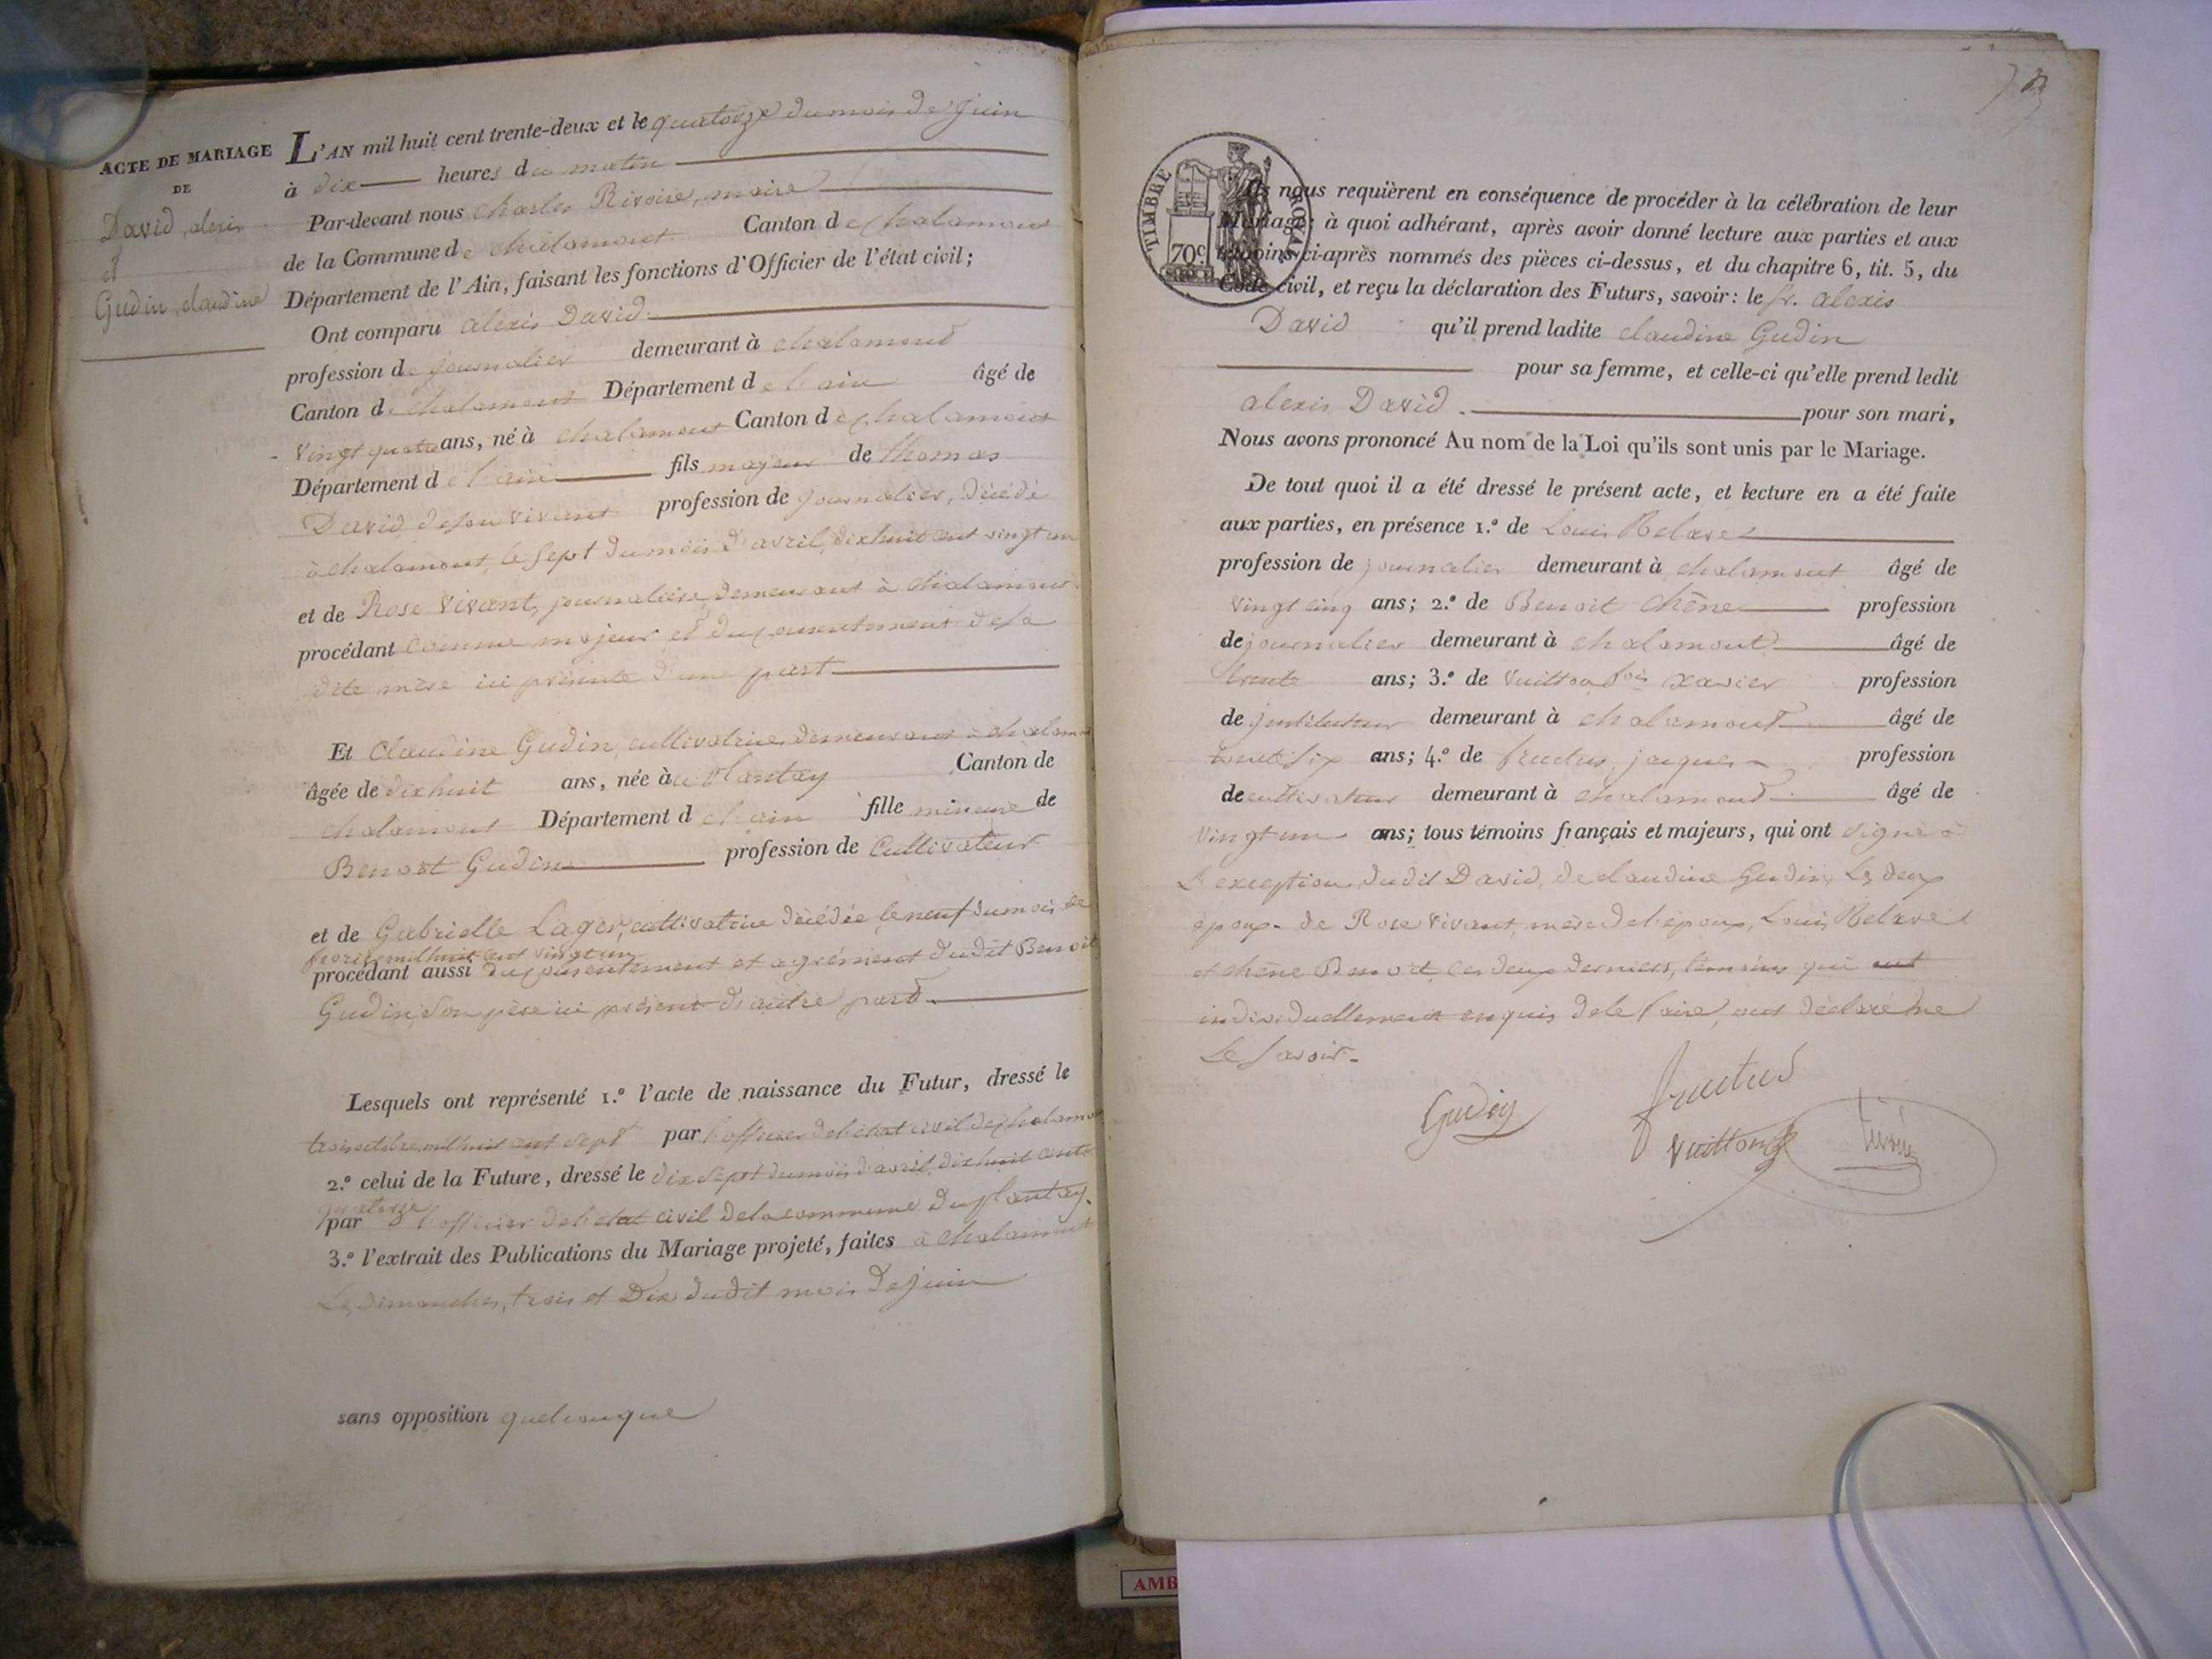 ACTE DE MARIAGE
DE
David, alexis
et
Gudin, claudine
L'AN mil huit cent trente-deux et le quatorze du mois de Juin
à dix heures du matin
Par-devant nous Charles Rivoire, maire
de la Commune de chalamont Canton de chalamont
Département de l'Ain, faisant les fonctions d'Officier de l'état civil;
Ont comparu alexis David
profession de journalier demeurant à chalamont
Canton de chalamont Département de l'ain âgé de
vingt quatre ans, né à chalamont Canton de chalamont
Département de l'ain fils majeur de thomas
David, de son vivant profession de journalier, décédé
à chalamont, le sept du mois d'avril, dix huit cent vingt un
et de Rose Vivant, journalière, demeurant à chalamont
procédant comme majeur et du consentement de sa
dite mère ici présente d'une part
Et Claudine Gudin, cultivatrice, demeurant à chalamont
âgée de dix huit ans, née à au Plantay Canton de
chalamont Département de l'ain fille mineure de
Benoit Gudin profession de Cultivateur
et de Gabrielle Lager, cultivatrice décédée, le neuf du mois de
février mil huit cent vingt un
procédant aussi du consentement et agrément dudit Benoit
Gudin, son père ici présent d'autre part
Lesquels ont représenté 1.º l'acte de naissance du Futur, dressé le
trois octobre mil huit cent sept par l'officier de l'état civil de chalamont
2.º celui de la Future, dressé le dix sept du mois d'avril, dix huit cent
quatorze
par l'officier de l'état civil de la commune du plantay.
3.º l'extrait des Publications du Mariage projeté, faites à chalamont
Les dimanches, trois et Dix dudit mois de juin
sans opposition quelconque
TIMBRE ROYAL
70 c.
Ils nous requièrent en conséquence de procéder à la célébration de leur
Mariage: à quoi adhérant, après avoir donné lecture aux parties et aux
témoins ci-après nommés des pièces ci-dessus, et du chapitre 6, tit. 5, du
Code civil, et reçu la déclaration des Futurs, savoir: le sr. alexis
David qu'il prend ladite claudine Gudin
pour sa femme, et celle-ci qu'elle prend ledit
alexis David. pour son mari,
Nous avons prononcé Au nom de la Loi qu'ils sont unis par le Mariage.
De tout quoi il a été dressé le présent acte, et lecture en a été faite
aux parties, en présence 1.º de Louis Relave
profession de journalier demeurant à chalamont âgé de
vingt cinq ans; 2.º de Benoit chêne profession
de journalier demeurant à chalamont âgé de
trente ans; 3.º de Vuitton fois xavier profession
de jnstituteur demeurant à chalamont âgé de
trente six ans; 4.º de fructus, jacques profession
de cultivateur demeurant à chalamont âgé de
vingt un ans; tous témoins français et majeurs, qui ont signé à
L'exception, dudit David, de claudine Gudin, Les deux
époux. de Rose vivant, mère de l'époux, Louis Relave
et chêne Benoit les deux derniers, témoins qui
individuellement enquis de le faire, ont déclaré ne
Le savoir.
Gudin
fructus
Vuitton
AMB